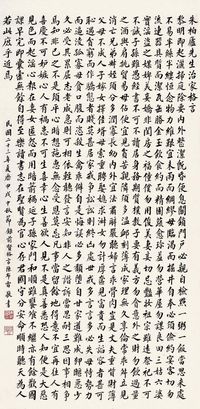 朱柏廬先生治家格言
黎明即起灑掃庭除要內外整潔既昏便息關鎖門戶必親自檢點一粥一飯當思來處
不易半絲半縷恆念物力維艱宜未雨而綢繆毋臨渴而掘井自奉必須儉約宴客切勿
流連器具質而潔瓦缶勝金玉飲食約而精園蔬愈珍饈勿營華屋勿謀良田三姑六婆
實淫盜之媒婢美妾嬌非閨房之福奴僕勿用俊美妻妾切忌艷妝祖宗雖遠祭祀不可
不誠子孫雖愚經書不可不讀居身務期質樸教子要有義方勿貪意外之財勿飲過量
之酒與肩挑貿易毋佔便宜見貧苦親鄰須多溫恤刻薄成家理無久享倫常乖舛立見
消亡兄弟叔姪須分多潤寡長幼內外宜法肅辭嚴聽婦言乖骨肉豈是丈夫重貲財薄
父母不成人子嫁女擇佳婿毋索重聘娶媳求淑女勿計厚奩見富貴而生諂容者最可
恥遇貧窮而作驕態者賤莫甚居家戒爭訟訟則終凶處世戒多言言多必失毋恃勢力
而凌逼孤寡毋貪口腹而恣殺生禽乖僻自是悔誤必多頹惰自甘家道難成狎暱惡少
久必受其累屈志老成急則可相依輕聽發言安知非人之譖愬當忍耐三思因事相爭
焉知非我之不是須平心暗想施惠無念受恩莫忘凡事當留餘地得意不宜再往人有
喜慶不可生妒忌心人有禍患不可生喜幸心善欲人見不是真善惡恐人知便是大惡
見色而起淫心報在妻女匿怨而用暗箭禍延子孫家門和順雖饔飧不繼亦有餘歡國
課早完即囊橐無餘自得至樂讀書志在聖賢為官心存君國守分安命順時聽天為人
若此庶乎近焉
民國二十三年夏曆甲戌中秋節錄前賢格言陳布雷敬書